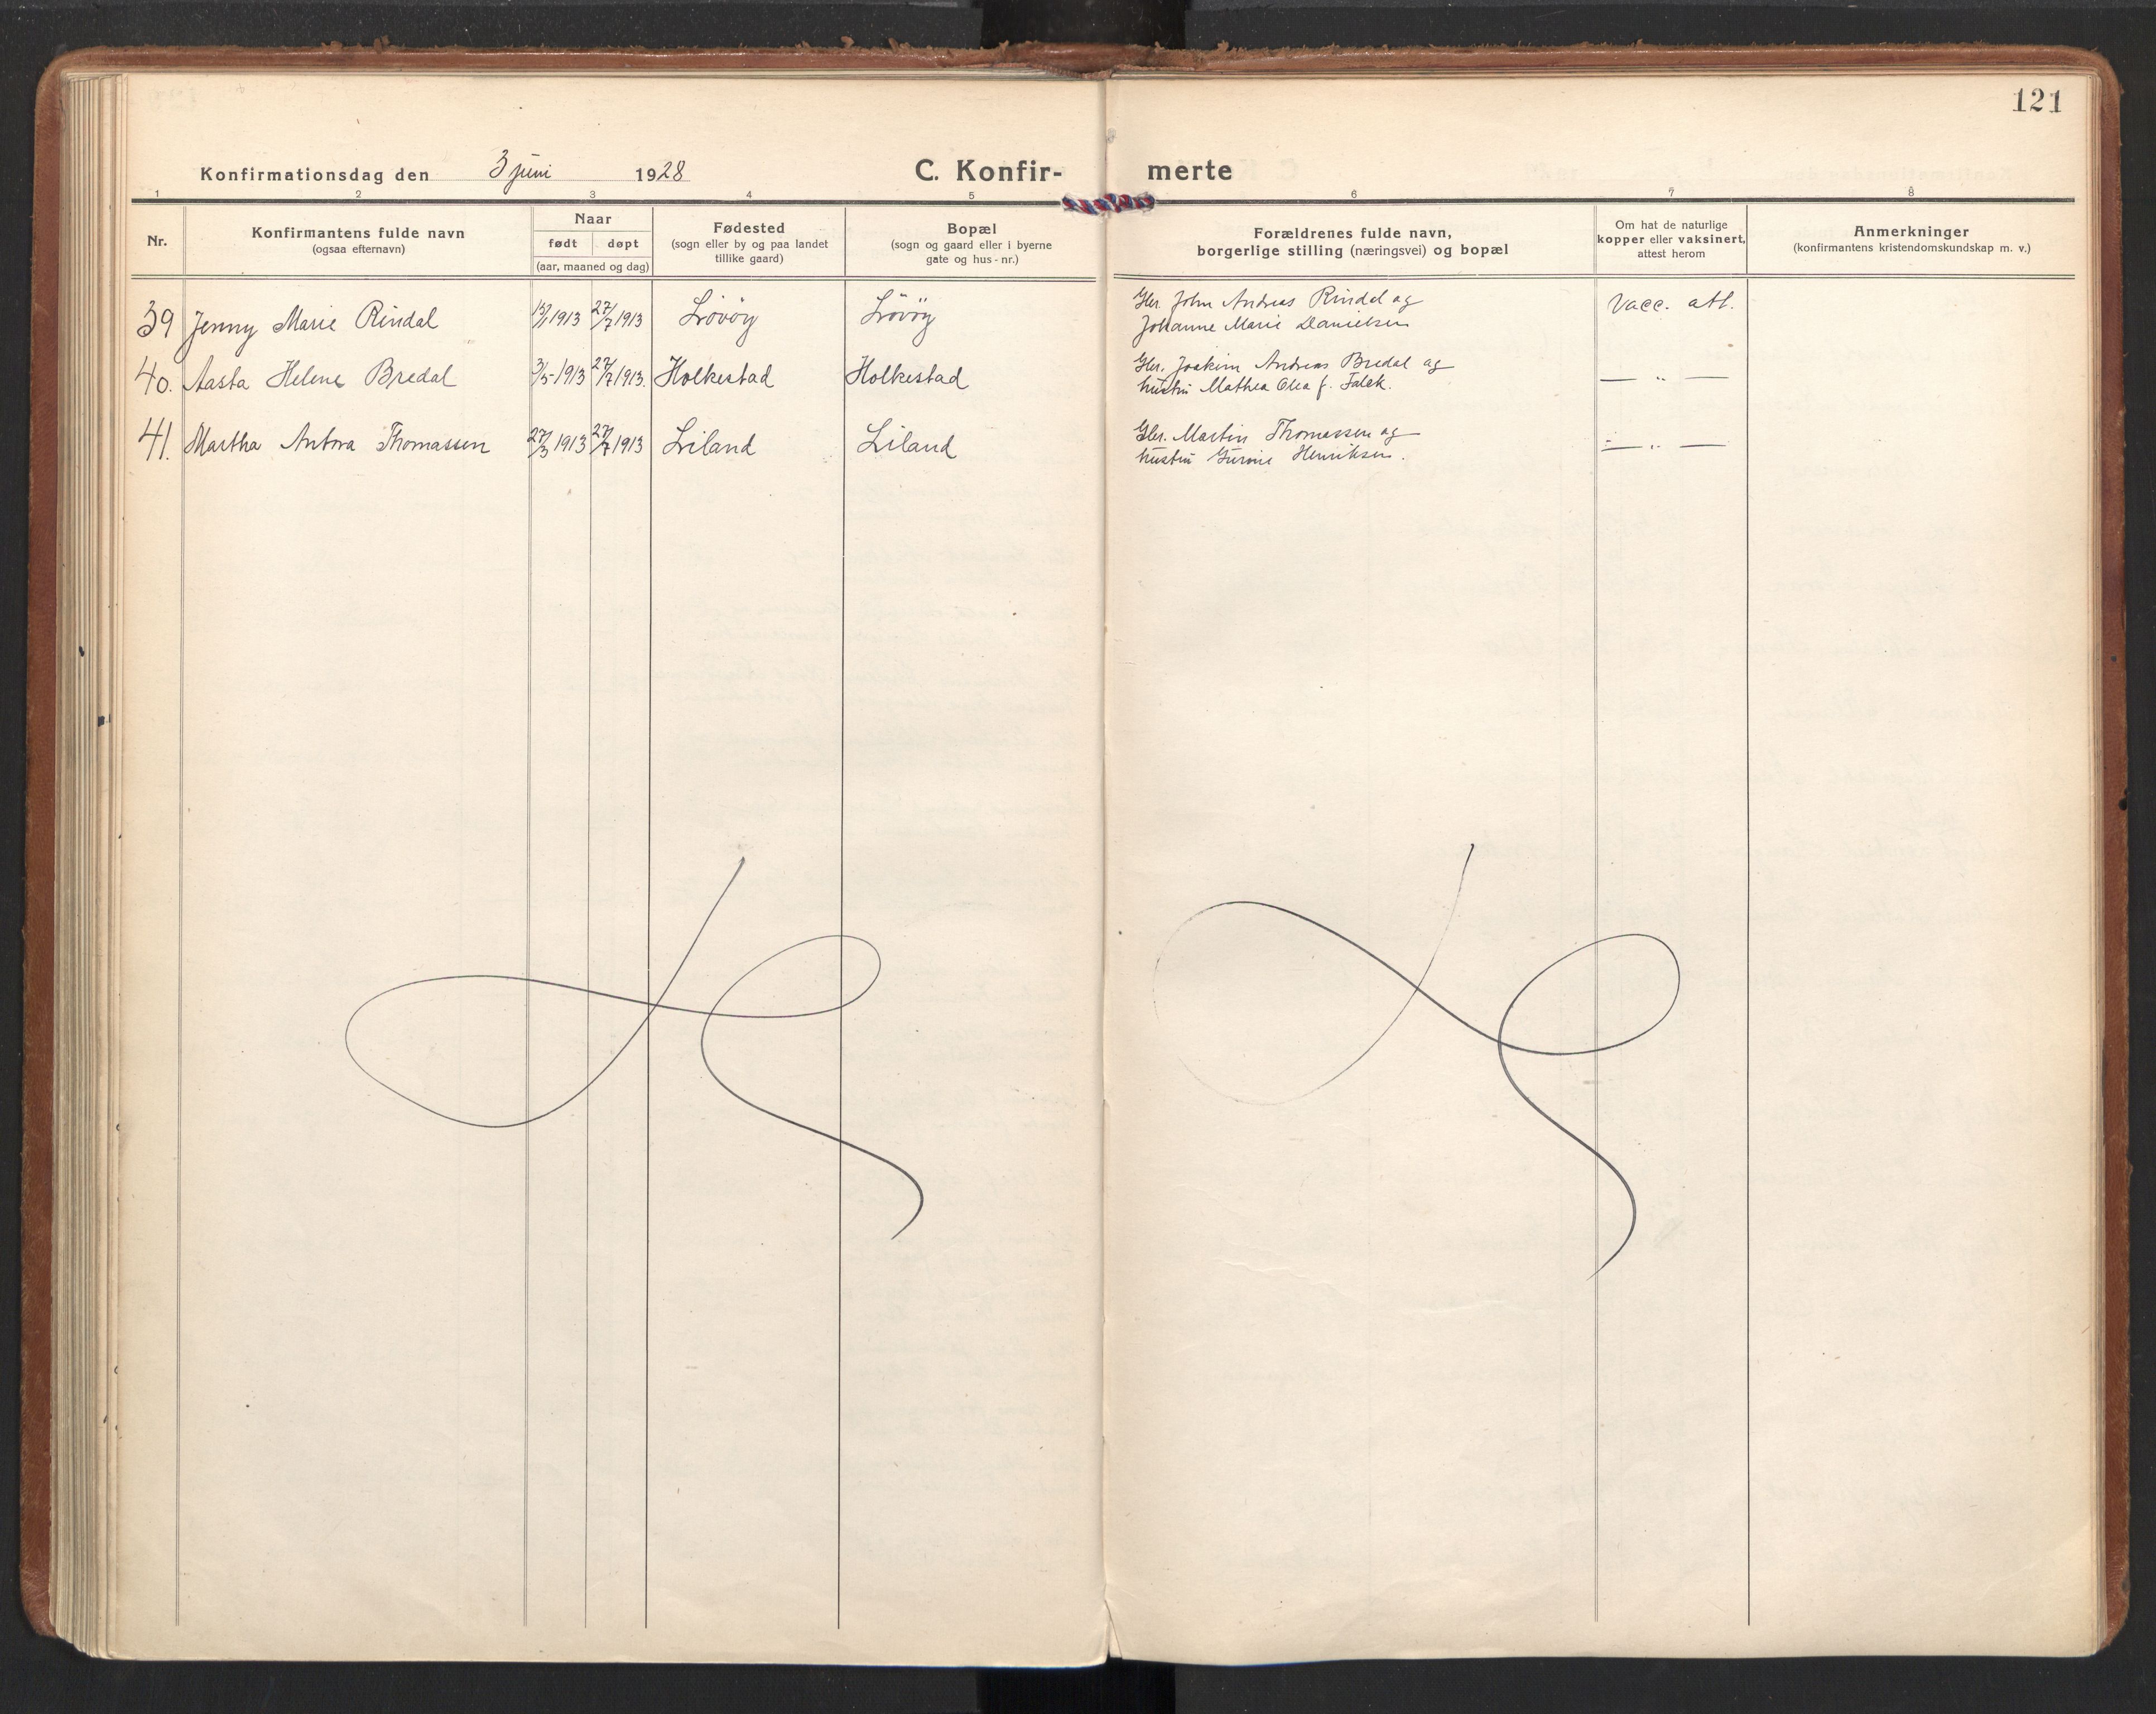 121
Konfirmationsdag den 3 juni 1928 C. Konfir- merte
1 2 3 4 5 6 7 8
Nr. Konfirmantens fulde navn (ogsaa efternavn) Naar født døpt (aar, maaned og dag) Fødested (sogn eller by og paa landet tillike gaard) Bopæl (sogn og gaard eller i byerne gate og hus-nr.) Forældrenes fulde navn, borgerlige stilling (næringsvei) og bopæl Om hat de naturlige kopper eller vaksinert, attest herom Anmerkninger (konfirmantens kristendomskundskap m. v.)
39 Jenny Marie Rindal 15/1 1913 27/7 1913 Løvöy Løvöy Gbr. John Andreas Rindal og Vacc. att.
Johanne Marie Danielsen
40. Aasta Helene Bredal 3/5 1913 27/7 1913. Holkestad Holkestad Gbr. Joakim Andreas Bredal og — „ —
hustru Mathea Olea f. Falck.
41. Martha Antora Thomassen 27/3 1913 27/7 1913 Liland Liland Gbr. Martin Thomassen og — „ —
hustru Gurine Henriksen.